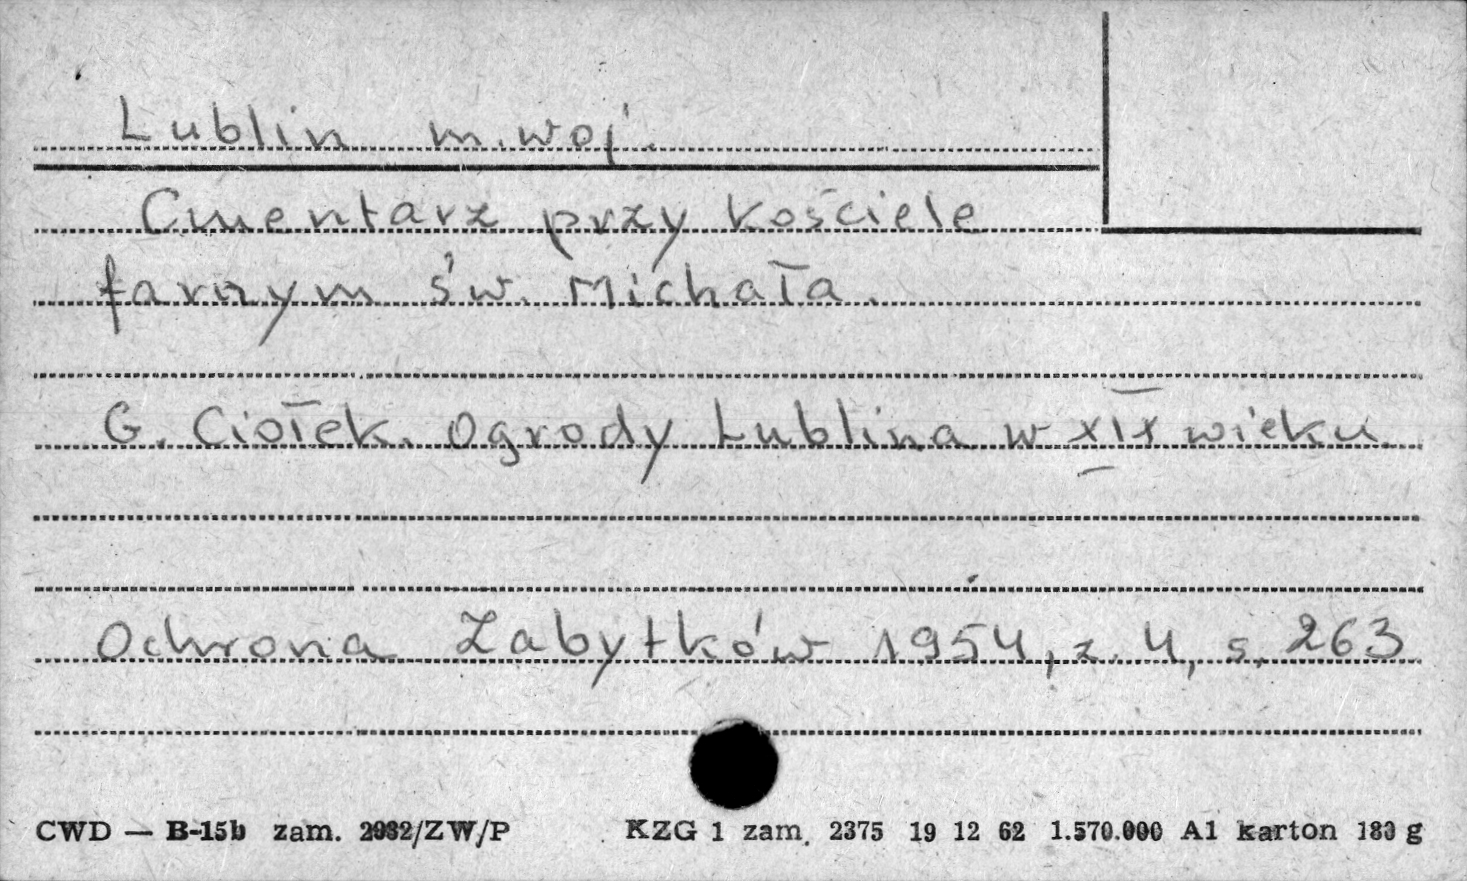 Lublin m. woj.
Cmentarz przy kościele
farnym św. Michała.
G. Ciołek. Ogrody Lublina w XIX wieku.
Ochrona Zabytków 1954, z. 4, s. 263
CWD — B-15b zam. 2982/ZW/P KZG 1 zam. 2375 19 12 62 1.570.000 A1 karton 180 g